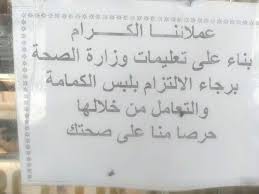 عملائنا الكرام
بناء على تعليمات وزارة الصحة
برجاء الالتزام بلبس الكمامة
والتعامل من خلالها
حرصا منا على صحتك